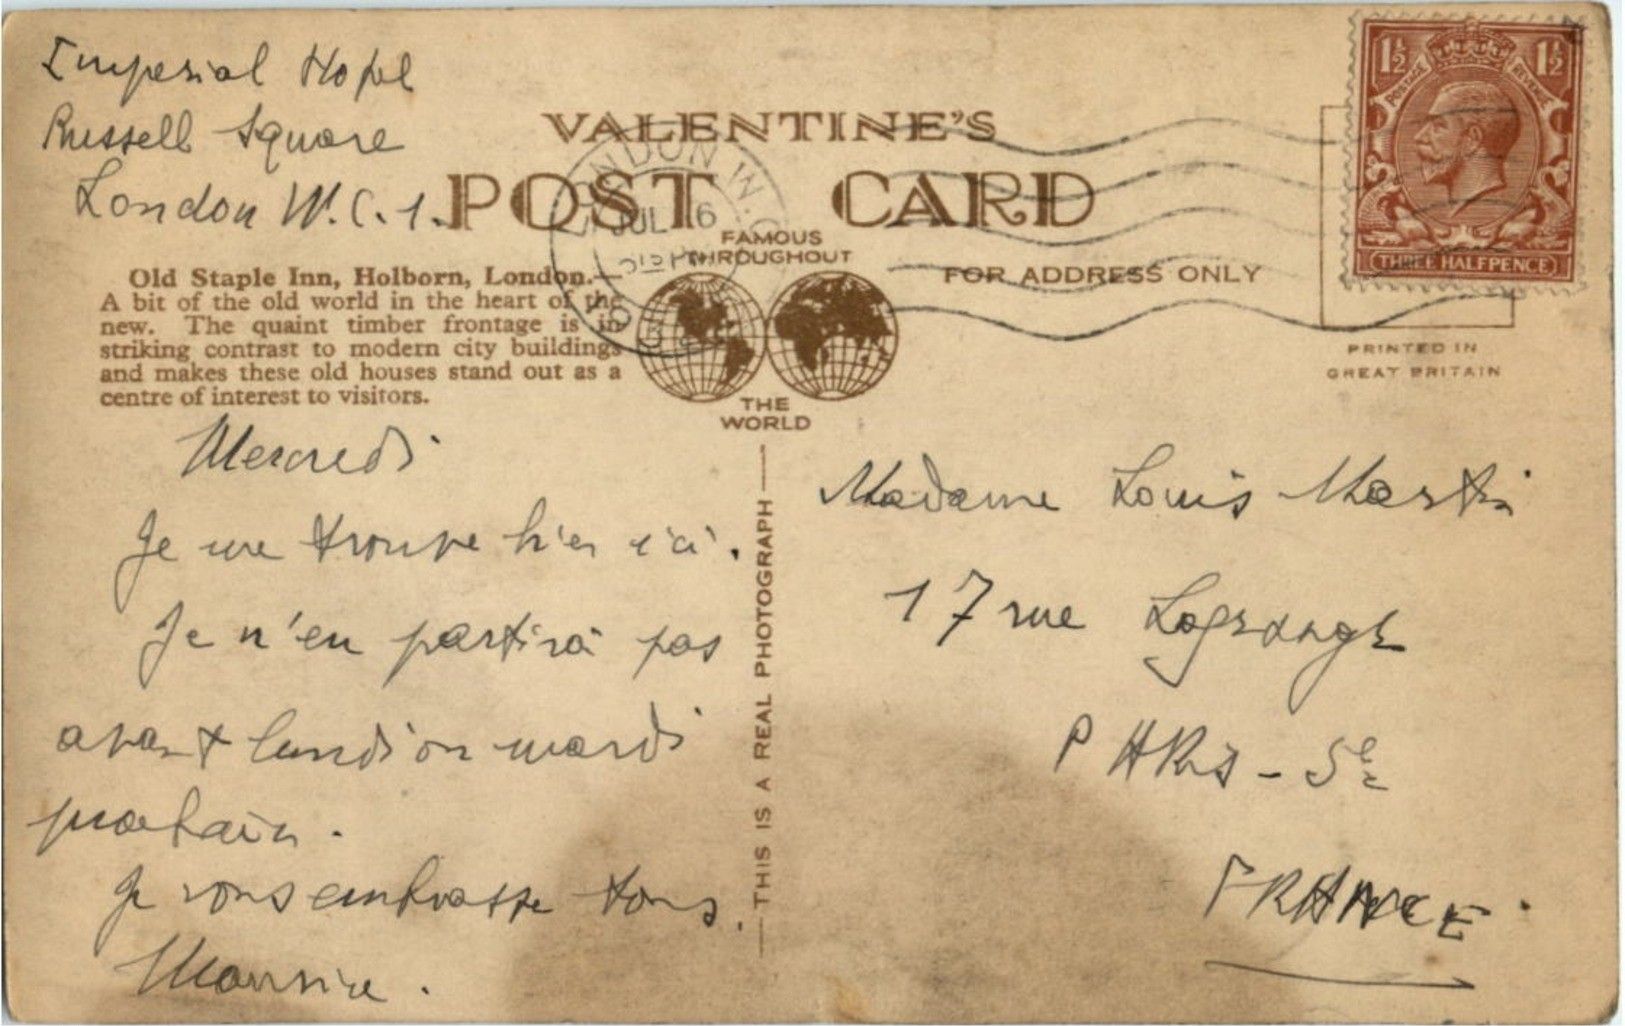 Imperial Hotel
Russell Square
London W.C.1.
VALENTINE'S
POST CARD
LONDON W.C.
JUL 6
FAMOUS
THROUGHOUT
THE
WORLD
FOR ADDRESS ONLY
1½ 1½
POSTAGE REVENUE
THREE HALFPENCE
PRINTED IN
GREAT BRITAIN
Old Staple Inn, Holborn, London.—
A bit of the old world in the heart of the
new. The quaint timber frontage is in
striking contrast to modern city buildings
and makes these old houses stand out as a
centre of interest to visitors.
Mercredi
Je me trouve bien ici.
Je n'en partirai pas
avant lundi ou mardi
prochain.
Je vous embrasse tous.
Maurice.
THIS IS A REAL PHOTOGRAPH
Madame Louis Martin
17 rue Lagrange
PARIS - 5e
FRANCE.